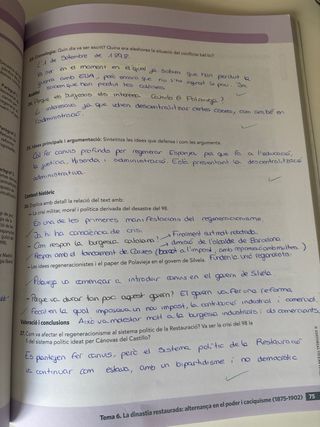 Cronologia: Quin dia va ser escrit? Quina era aleshores la situació del conflicte bèl·lic?
1 de Setembre de 1898.
Va ser en el moment en el qual ja sabien que han perdut la
guerra amb EUA, però encara que no s'ha signat la pau. Ja
sabien que han perdut les colònies.
Perquè els burgesos els interessa Cuba i Polavieja?
L'interessa ja que volen descentralitzar certes coses, com també en
l'administració.
Idees principals i argumentació: Sintetitza les idees que defensa i com les argumenta.
Cal fer canvis profunds per regenerar Espanya pel que fa a l'educació,
la justícia, Hisenda i administració. Està presentant la descentralització
administrativa.
Context històric
Explica amb detall la relació del text amb:
— La crisi militar, moral i política derivada del desastre del 98.
És una de les primeres manifestacions del regeneracionisme
Ja hi ha consciència de crisi.
- Com respon la burgesia catalana? → Finalment surt mal-retratada
→ dimissió de l'alcalde de Barcelona
Respon amb el tancament de Caixes (boicot a l'impost, amb repressió amb multes)
— Les idees regeneracionistes i el paper de Polavieja en el govern de Silvela. Funden la unió regionalista.
Polavieja va començar a introduir canvis en el govern de Silvela
- Perquè va durar tan poc aquest govern? El govern va fer una reforma
fiscal en la qual imposava un nou impost, la contribució industrial i comercial.
Valoració i conclusions
Això va molestar molt a la burgesia industrials i als comerciants.
Com va afectar el regeneracionisme al sistema polític de la Restauració? Va ser la crisi del 98 la
del sistema polític ideat per Cánovas del Castillo?
Es plantegen fer canvis, però el sistema polític de la Restauració
va continuar com estava, amb un bipartidisme i no democràtic
Tema 6. La dinastia restaurada: alternança en el poder i caciquisme (1875-1902) 75